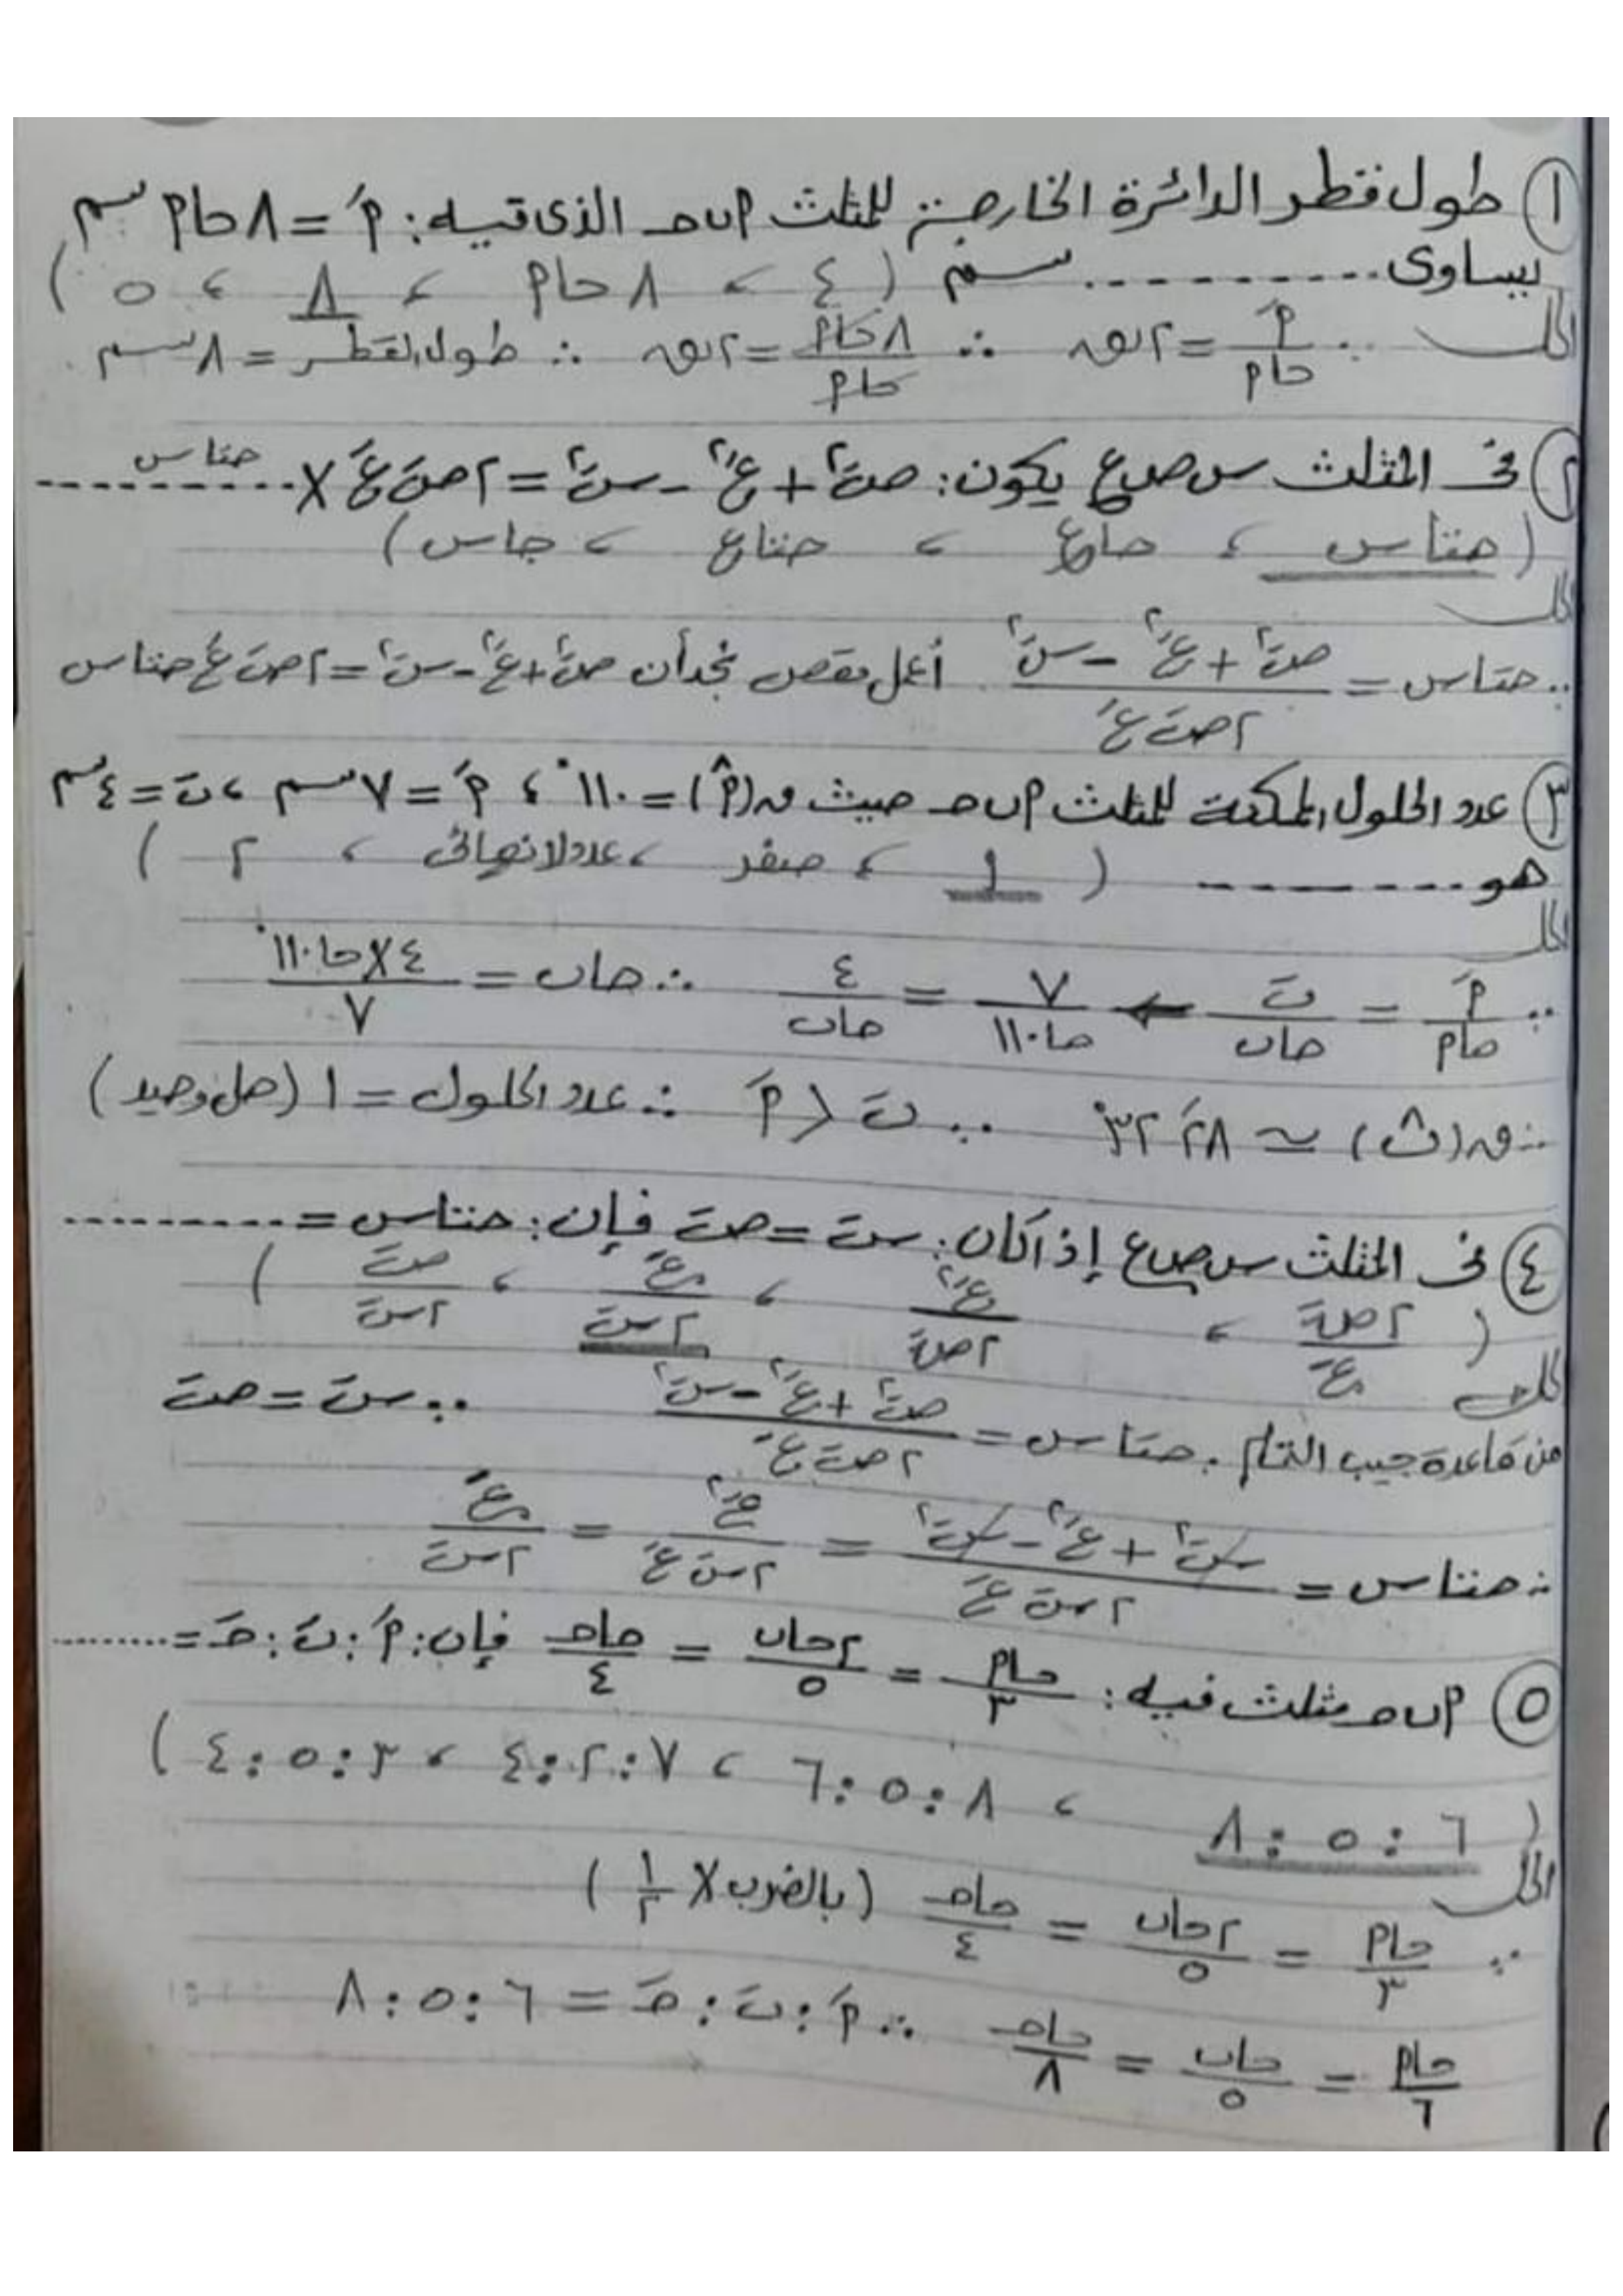 ١ طول قطر الدائرة الخارجة للمثلث أ ب حـ الذى فيه: أَ = ٨ حا أ سم
يساوى .......... سم ( ٤ ، ٨ حا أ ، ٨ ، ٥ )
الحل ∵ أَ / حا أ = ٢ نق ∴ ٨ حا أ / حا أ = ٢ نق ∴ طول القطر = ٨ سم
٢ فى المثلث س ص ع يكون: صَ٢ + عَ٢ - سَ٢ = ٢ صَ عَ × .......... حتا س
( حتا س ، حا ع ، حتا ع ، جا س )
الحل
∵ حتا س = صَ٢ + عَ٢ - سَ٢ / ٢ صَ عَ أعمل مقص نجد أن صَ٢ + عَ٢ - سَ٢ = ٢ صَ عَ حتا س
٣ عدد الحلول الممكنة للمثلث أ ب حـ حيث ق(أ^) = ١١٠° ، أَ = ٧ سم ، بَ = ٤ سم
هو .......... ( ١ ، صفر ، عدد لا نهائى ، ٢ )
الحل
∵ أَ / حا أ = بَ / حا ب ← ٧ / حا ١١٠ = ٤ / حا ب ∴ حا ب = ٤ × حا ١١٠° / ٧
∴ ق(ب^) ≃ ٢٨ َ ٣٢° ∵ بَ < أَ ∴ عدد الحلول = ١ (حل وحيد)
٤ فى المثلث س ص ع إذا كان: سَ = صَ فإن: حتا س = ..........
( ٢ صَ / عَ ، عَ٢ / ٢ صَ ، عَ / ٢ سَ ، صَ / ٢ سَ )
الحل
من قاعدة جيب التمام: حتا س = صَ٢ + عَ٢ - سَ٢ / ٢ صَ عَ ∵ سَ = صَ
∴ حتا س = سَ٢ + عَ٢ - سَ٢ / ٢ سَ عَ = عَ٢ / ٢ سَ عَ = عَ / ٢ سَ
٥ أ ب حـ مثلث فيه: حا أ / ٣ = ٢ حا ب / ٥ = حا حـ / ٤ فإن: أَ : بَ : حَـ = ..........
( ٦ : ٥ : ٨ ، ٨ : ٥ : ٦ ، ٧ : ٢ : ٤ ، ٣ : ٥ : ٤ )
الحل
∵ حا أ / ٣ = ٢ حا ب / ٥ = حا حـ / ٤ ( بالضرب × ١ / ٢ )
حا أ / ٦ = حا ب / ٥ = حا حـ / ٨ ∴ أَ : بَ : حَـ = ٦ : ٥ : ٨